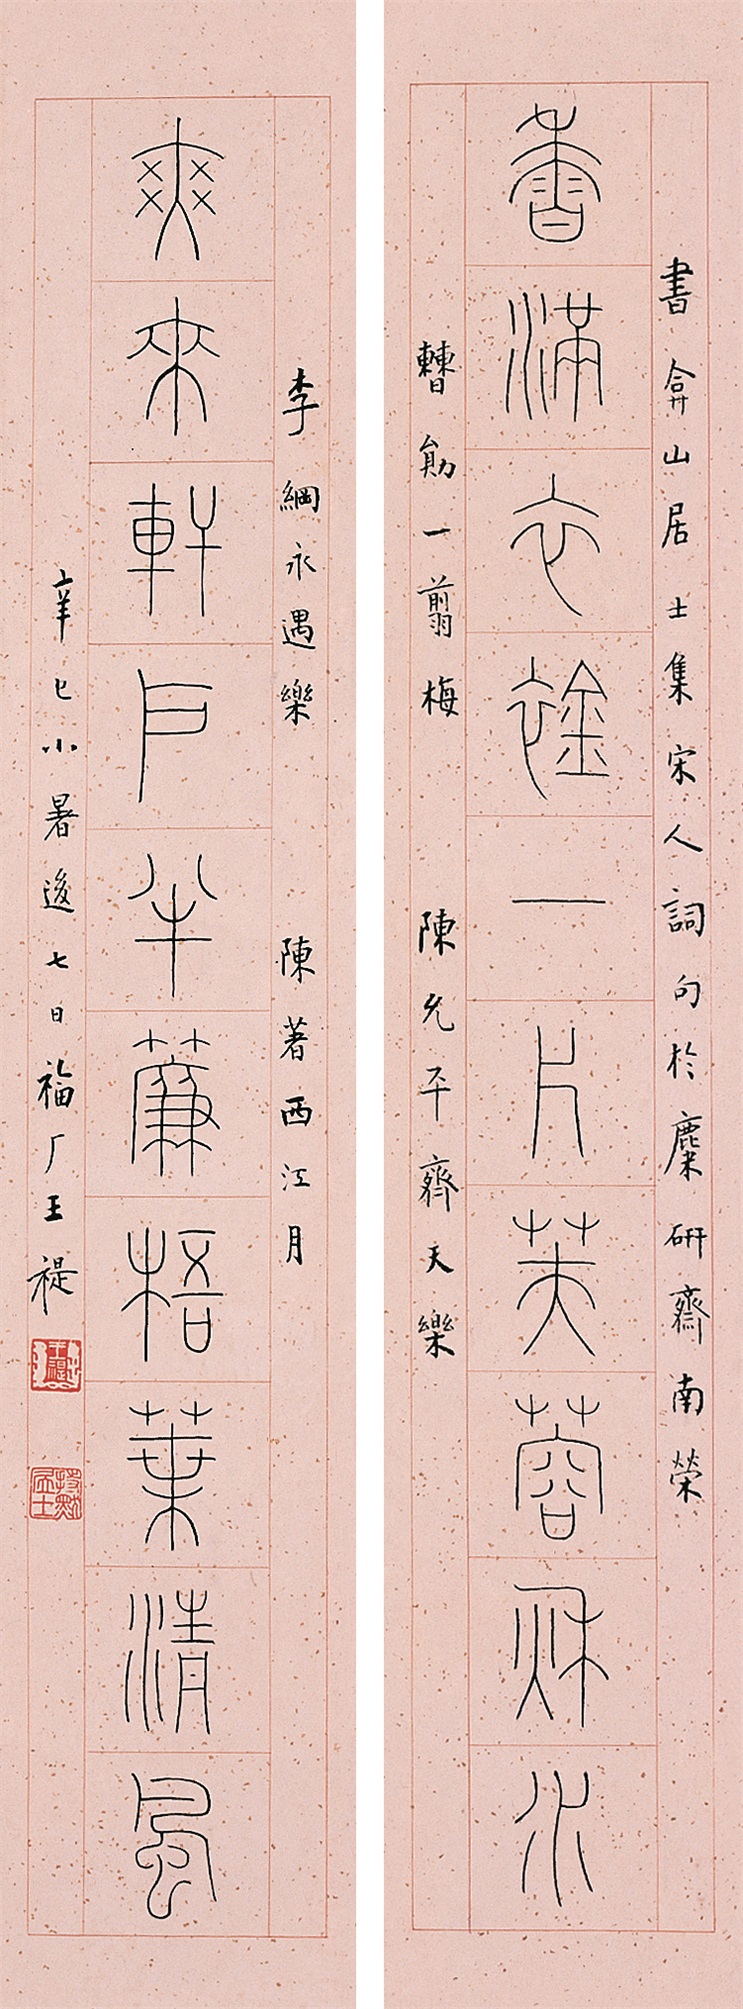 書弇山居士集宋人詞句於麋研齋南榮
香滿衣䘳一片芙蓉秋水
曹勛一翦梅 陳允平齊天樂
李綱永遇樂 陳著西江月
爽來軒戶半簾梧葉清風
辛巳小暑後七日福厂王禔
持默居士